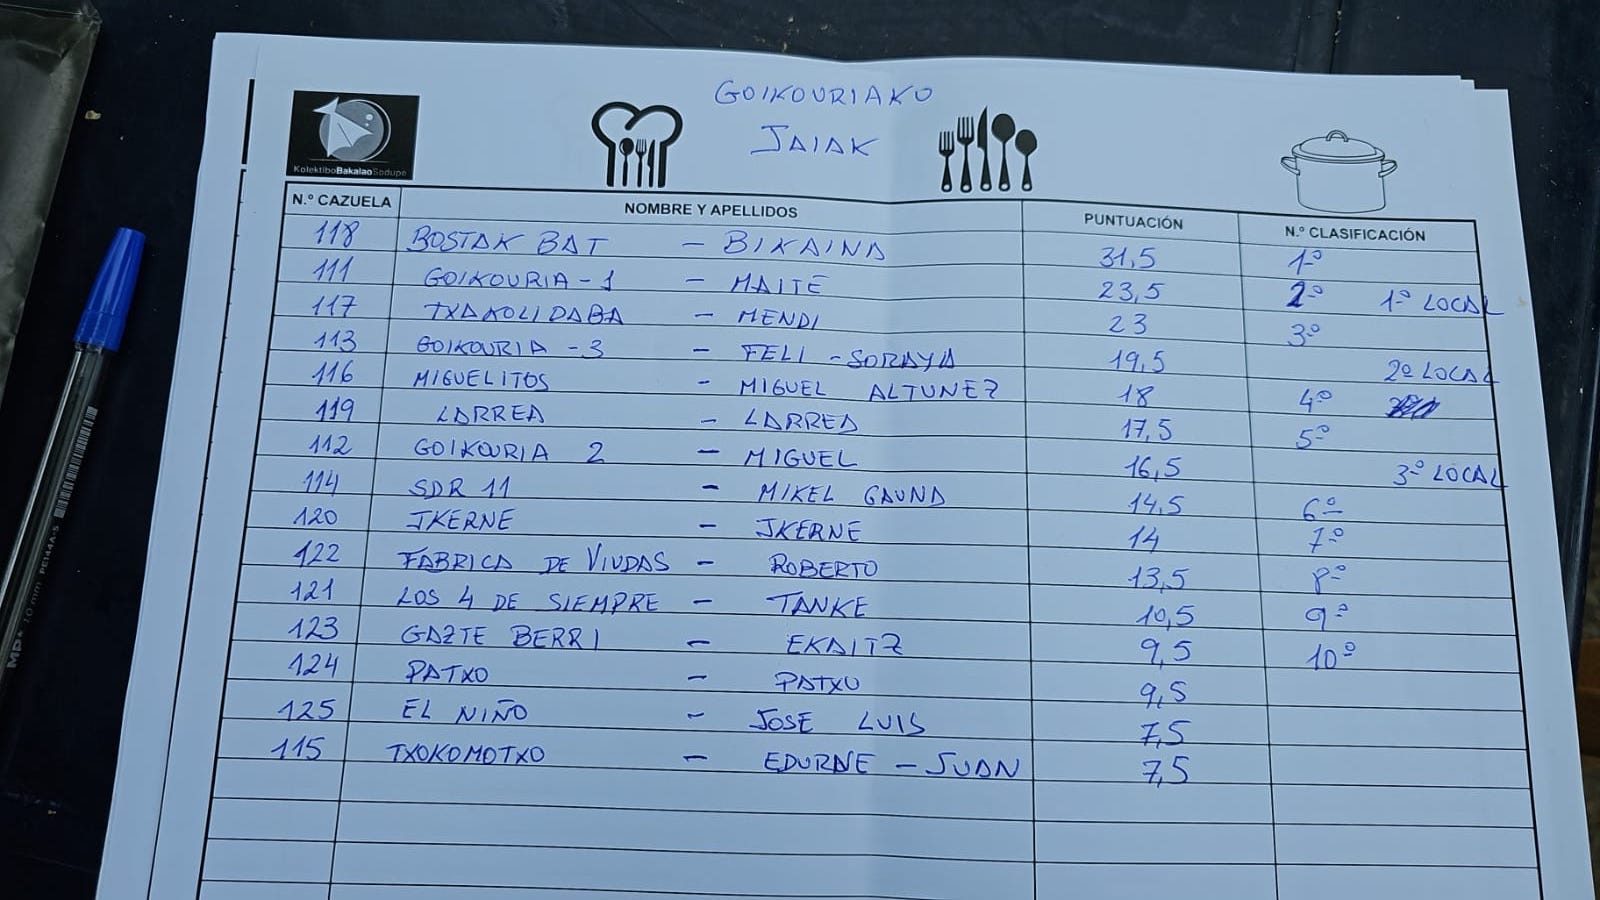 GOIKOURIAKO
JAIAK
KolektiboBakalaoSodupe
N.º CAZUELA NOMBRE Y APELLIDOS PUNTUACIÓN N.º CLASIFICACIÓN
118 BOSTAK BAT - BIKAINA 31,5 1º
111 GOIKOURIA - 1 - MAITE 23,5 2º 1º LOCAL
117 TXAKOLIDABA - MENDI 23 3º
113 GOIKOURIA - 3 - FELI - SORAYA 19,5 2º LOCAL
116 MIGUELITOS - MIGUEL ALTUNEZ 18 4º
119 LARREA - LARREA 17,5 5º
112 GOIKOURIA 2 - MIGUEL 16,5 3º LOCAL
114 SDR 11 - MIKEL GAUNA 14,5 6º
120 IKERNE - IKERNE 14 7º
122 FABRICA DE VIUDAS - ROBERTO 13,5 8º
121 LOS 4 DE SIEMPRE - TANKE 10,5 9º
123 GAZTE BERRI - EKAITZ 9,5 10º
124 PATXO - PATXO 9,5
125 EL NIÑO - JOSE LUIS 7,5
115 TXOKOMOTXO - EDURNE - JUAN 7,5
MP 1.0 mm PE144A-S